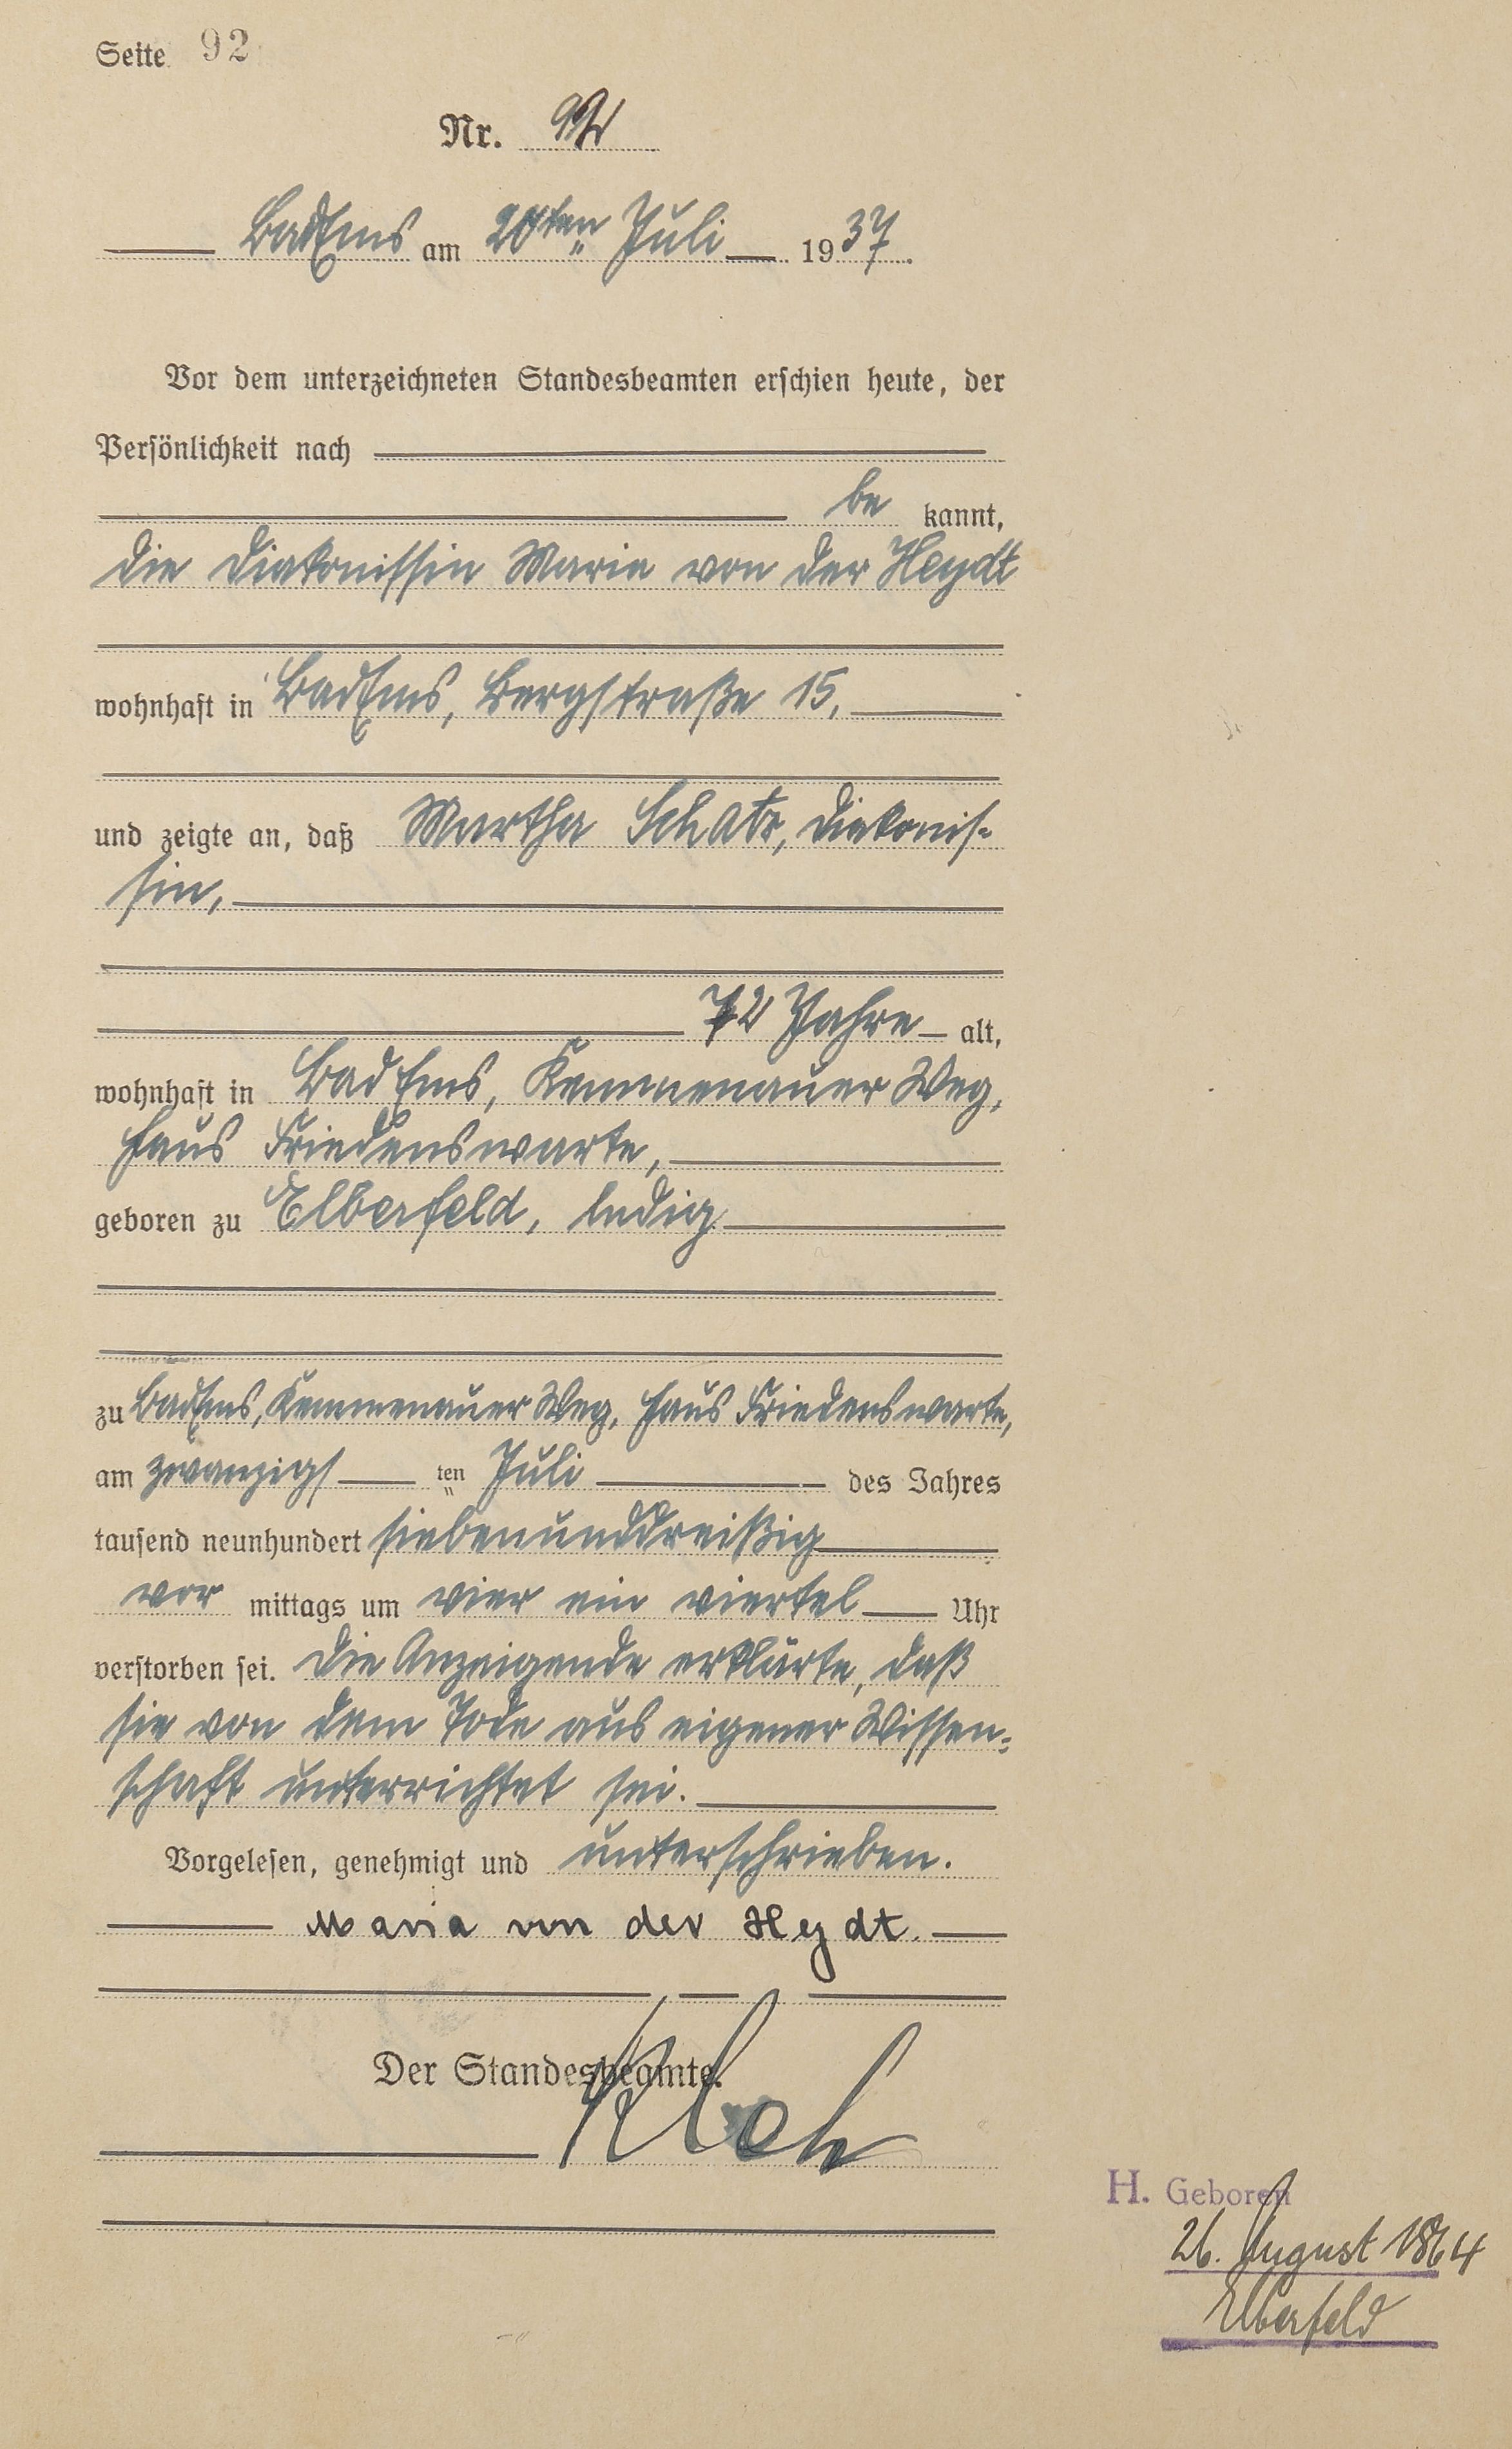 Seite 92
Nr. 92
Bad Ems am 20ten Juli 1937.
Vor dem unterzeichneten Standesbeamten erschien heute, der
Persönlichkeit nach
be kannt,
die Diakonissin Maria von der Heydt
wohnhaft in Bad Ems, Bergstraße 15,
und zeigte an, daß Martha Schatz, Diakonis-
sin,
72 Jahre alt,
wohnhaft in Bad Ems, Kemmenauer Weg,
Haus Friedenswarte,
geboren zu Elberfeld, ledig
zu Bad Ems, Kemmenauer Weg, Haus Friedenswarte,
am zwanzigs ten Juli des Jahres
tausend neunhundert siebenunddreißig
vor mittags um vier ein viertel Uhr
verstorben sei. Die Anzeigende erklärte, daß
sie von dem Tode aus eigener Wissen-
schaft unterrichtet sei.
Vorgelesen, genehmigt und unterschrieben.
Maria von der Heydt.
Der Standesbeamte.
H. Geboren
26. August 1864
Elberfeld